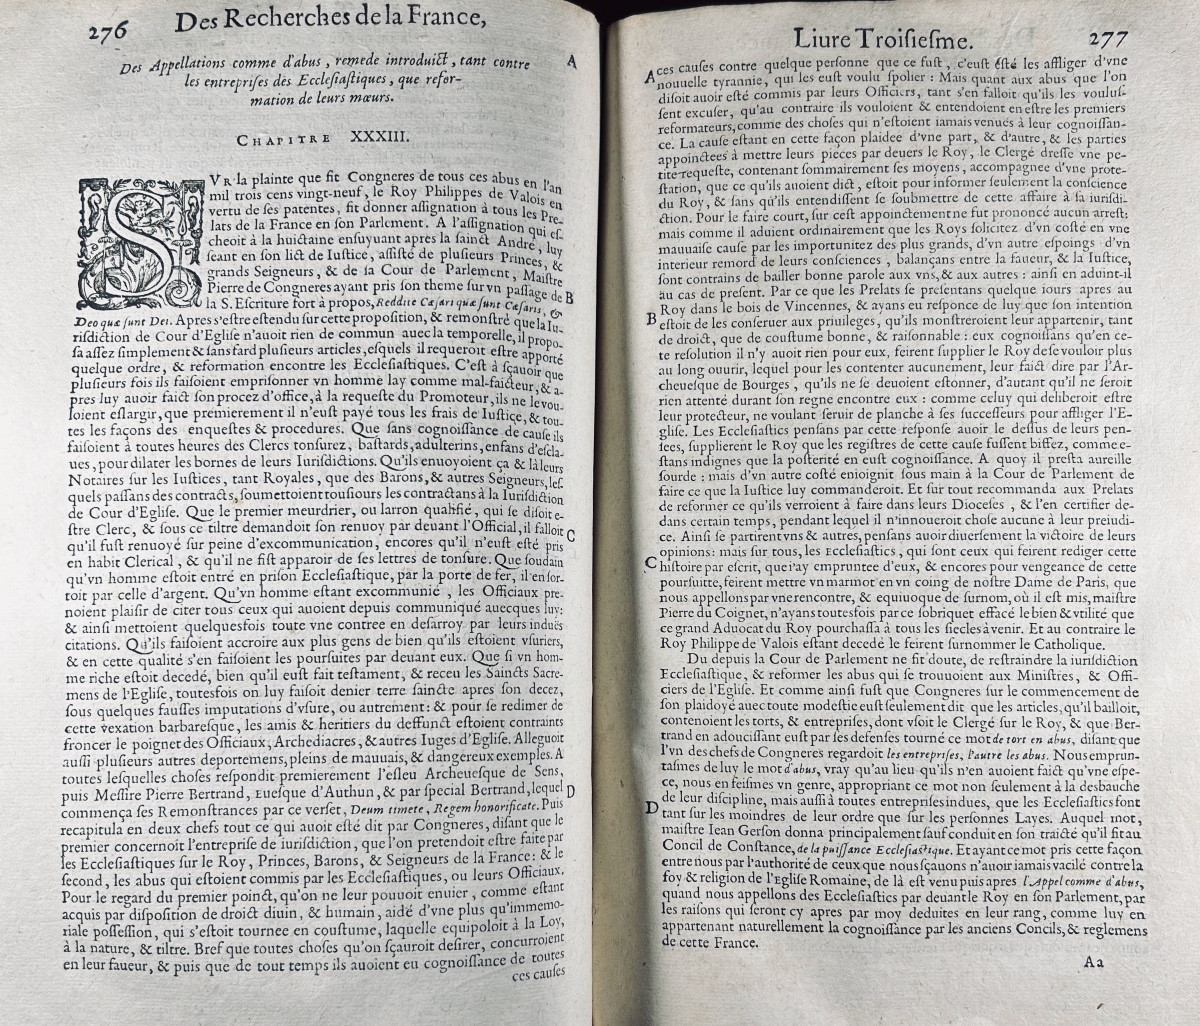 276
Des Recherches de la France,
Des Appellations comme d'abus, remede introduict, tant contre
les entreprises des Ecclesiastiques, que refor-
mation de leurs mœurs.
A
CHAPITRE XXXIII.
SVR la plainte que fit Congneres de tous ces abus en l'an
mil trois cens vingt-neuf, le Roy Philippes de Valois en
vertu de ses patentes, fit donner assignation à tous les Pre-
lats de la France en son Parlement. A l'assignation qui es-
cheoit à la huictaine ensuyuant apres la sainct André, luy
seant en son lict de Iustice, assisté de plusieurs Princes, &
grands Seigneurs, & de sa Cour de Parlement, Maistre
Pierre de Congneres ayant pris son theme sur vn passage de
B
la S. Escriture fort à propos, Reddite Cæsari quæ sunt Cæsaris, &
Deo quæ sunt Dei. Apres s'estre estendu sur cette proposition, & remonstré que la Iu-
risdiction de Cour d'Eglise n'auoit rien de commun auec la temporelle, il propo-
sa assez simplement & sans fard plusieurs articles, esquels il requeroit estre apporté
quelque ordre, & reformation encontre les Ecclesiastiques. C'est à sçauoir que
plusieurs fois ils faisoient emprisonner vn homme lay comme mal-faicteur, & a-
pres luy auoir faict son procez d'office, à la requeste du Promoteur, ils ne le vou-
loient eslargir, que premierement il n'eust payé tous les frais de Iustice, & tou-
tes les façons des enquestes & procedures. Que sans cognoissance de cause ils
faisoient à toutes heures des Clercs tonsurez, bastards, adulterins, enfans d'escla-
ues, pour dilater les bornes de leurs Iurisdictions. Qu'ils enuoyoient çà & là leurs
Notaires sur les Iustices, tant Royales, que des Barons, & autres Seigneurs, les-
quels passans des contracts, soumettoient tousiours les contractans à la Iurisdiction
de Cour d'Eglise. Que le premier meurdrier, ou larron qualifié, qui se disoit e-
stre Clerc, & sous ce tiltre demandoit son renuoy par deuant l'Official, il falloit
C
qu'il fust renuoyé sur peine d'excommunication, encores qu'il n'eust esté pris
en habit Clerical, & qu'il ne fist apparoir de ses lettres de tonsure. Que soudain
qu'vn homme estoit entré en prison Ecclesiastique, par la porte de fer, il en sor-
toit par celle d'argent. Qu'vn homme estant excommunié, les Officiaux pre-
noient plaisir de citer tous ceux qui auoient depuis communiqué auecques luy:
& ainsi mettoient quelquesfois toute vne contree en desarroy par leurs induës
citations. Qu'ils faisoient accroire aux plus gens de bien qu'ils estoient vsuriers,
& en cette qualité s'en faisoient les poursuites par deuant eux. Que si vn hom-
me riche estoit decedé, bien qu'il eust fait testament, & receu les Saincts Sacre-
mens de l'Eglise, toutesfois on luy faisoit denier terre saincte apres son decez,
sous quelques fausses imputations d'vsure, ou autrement: & pour se redimer de
cette vexation barbaresque, les amis & heritiers du deffunct estoient contraints
froncer le poignet des Officiaux, Archediacres, & autres Iuges d'Eglise. Alleguoit
aussi plusieurs autres deportemens, pleins de mauuais, & dangereux exemples. A
toutes lesquelles choses respondit premierement l'esleu Archeuesque de Sens,
puis Messire Pierre Bertrand, Euesque d'Authun, & par special Bertrand, lequel
D
commença ses Remonstrances par ce verset, Deum timete, Regem honorificate. Puis
recapitula en deux chefs tout ce qui auoit esté dit par Congneres, disant que le
premier concernoit l'entreprise de iurisdiction, que l'on pretendoit estre faite par
les Ecclesiastiques sur le Roy, Princes, Barons, & Seigneurs de la France: & le
second, les abus qui estoient commis par les Ecclesiastiques, ou leurs Officiaux.
Pour le regard du premier poinct, qu'on ne leur pouuoit enuier, comme estant
acquis par disposition de droict diuin, & humain, aidé d'vne plus qu'immemo-
riale possession, qui s'estoit tournee en coustume, laquelle equipoloit à la Loy,
à la nature, & tiltre. Bref que toutes choses qu'on sçauroit desirer, concurroient
en leur faueur, & puis que de tout temps ils auoient eu cognoissance de toutes
ces causes
Liure Troisiesme.
277
A
ces causes contre quelque personne que ce fust, c'eust esté les affliger d'vne
nouuelle tyrannie, qui les eust voulu spolier: Mais quant aux abus que l'on
disoit auoir esté commis par leurs Officiers, tant s'en falloit qu'ils les voulus-
sent excuser, qu'au contraire ils vouloient & entendoient en estre les premiers
reformateurs, comme des choses qui n'estoient iamais venuës à leur cognoissan-
ce. La cause estant en cette façon plaidee d'vne part, & d'autre, & les parties
appoinctees à mettre leurs pieces par deuers le Roy, le Clergé dresse vne pe-
tite requeste, contenant sommairement ses moyens, accompagnee d'vne prote-
station, que ce qu'ils auoient dict, estoit pour informer seulement la conscience
du Roy, & sans qu'ils entendissent se soubmettre de cette affaire à sa iurisdi-
ction. Pour le faire court, sur cest appoinctement ne fut prononcé aucun arrest:
mais comme il aduient ordinairement que les Roys solicitez d'vn costé en vne
mauuaise cause par les importunitez des plus grands, d'vn autre espoings d'vn
interieur remord de leurs consciences, balançans entre la faueur, & la Iustice,
sont contrains de bailler bonne parole aux vns, & aux autres: ainsi en aduint-il
au cas de present. Par ce que les Prelats se presentans quelque iours apres au
Roy dans le bois de Vincennes, & ayans eu responce de luy que son intention
B
estoit de les conseruer aux priuileges, qu'ils monstreroient leur appartenir, tant
de droict, que de coustume bonne, & raisonnable: eux cognoissans qu'en ce-
te resolution il n'y auoit rien pour eux, feirent supplier le Roy de se vouloir plus
au long ouurir, lequel pour les contenter aucunement, leur faict dire par l'Ar-
cheuesque de Bourges, qu'ils ne se deuoient estonner, d'autant qu'il ne seroit
rien attenté durant son regne encontre eux: comme celuy qui deliberoit estre
leur protecteur, ne voulant seruir de planche à ses successeurs pour affliger l'E-
glise. Les Ecclesiastics pensans par cette response auoir le dessus de leurs pen-
sees, supplierent le Roy que les registres de cette cause fussent biffez, comme e-
stans indignes que la posterité en eust cognoissance. A quoy il presta aureille
sourde: mais d'vn autre costé enioignit sous main à la Cour de Parlement de
faire ce que la Iustice luy commanderoit. Et sur tout recommanda aux Prelats
de reformer ce qu'ils verroient à faire dans leurs Dioceses, & l'en certifier de-
dans certain temps, pendant lequel il n'innoueroit chose aucune à leur preiudi-
ce. Ainsi se partirent vns & autres, pensans auoir diuersement la victoire de leurs
opinions: mais sur tous, les Ecclesiastics, qui sont ceux qui feirent rediger cette
C
histoire par escrit, que i'ay empruntee d'eux, & encores pour vengeance de cette
poursuitte, feirent mettre vn marmot en vn coing de nostre Dame de Paris, que
nous appellons par vne rencontre, & equiuoque de surnom, où il est mis, maistre
Pierre du Coignet, n'ayans toutesfois par ce sobriquet effacé le bien & vtilité que
ce grand Aduocat du Roy pourchassa à tous les siecles à venir. Et au contraire le
Roy Philippe de Valois estant decedé le feirent surnommer le Catholique.
Du depuis la Cour de Parlement ne fit doute, de restraindre la iurisdiction
Ecclesiastique, & reformer les abus qui se trouuoient aux Ministres, & Offi-
ciers de l'Eglise. Et comme ainsi fust que Congneres sur le commencement de
son plaidoyé auec toute modestie eust seulement dit que les articles, qu'il bailloit,
contenoient les torts, & entreprises, dont vsoit le Clergé sur le Roy, & que Ber-
trand en adoucissant eust par ses defenses tourné ce mot de tort en abus, disant que
l'vn des chefs de Congneres regardoit les entreprises, l'autre les abus. Nous emprun-
tasmes de luy le mot d'abus, vray qu'au lieu qu'ils n'en auoient faict qu'vne espe-
ce, nous en feismes vn genre, appropriant ce mot non seulement à la desbauche
de leur discipline, mais aussi à toutes entreprises indues, que les Ecclesiastics font
D
tant sur les moindres de leur ordre que sur les personnes Layes. Auquel mot,
maistre Iean Gerson donna principalement sauf conduit en son traicté qu'il fit au
Concil de Constance, de la puissance Ecclesiastique. Et ayant ce mot pris cette façon
entre nous par l'authorité de ceux que nous sçauons n'auoir iamais vacilé contre la
foy & religion de l'Eglise Romaine, de là est venu puis apres l'Appel comme d'abus,
quand nous appellons des Ecclesiastics par deuant le Roy en son Parlement, par
les raisons qui seront cy apres par moy deduites en leur rang, comme luy en
appartenant naturellement la cognoissance par les anciens Concils, & reglemens
de cette France.
Aa